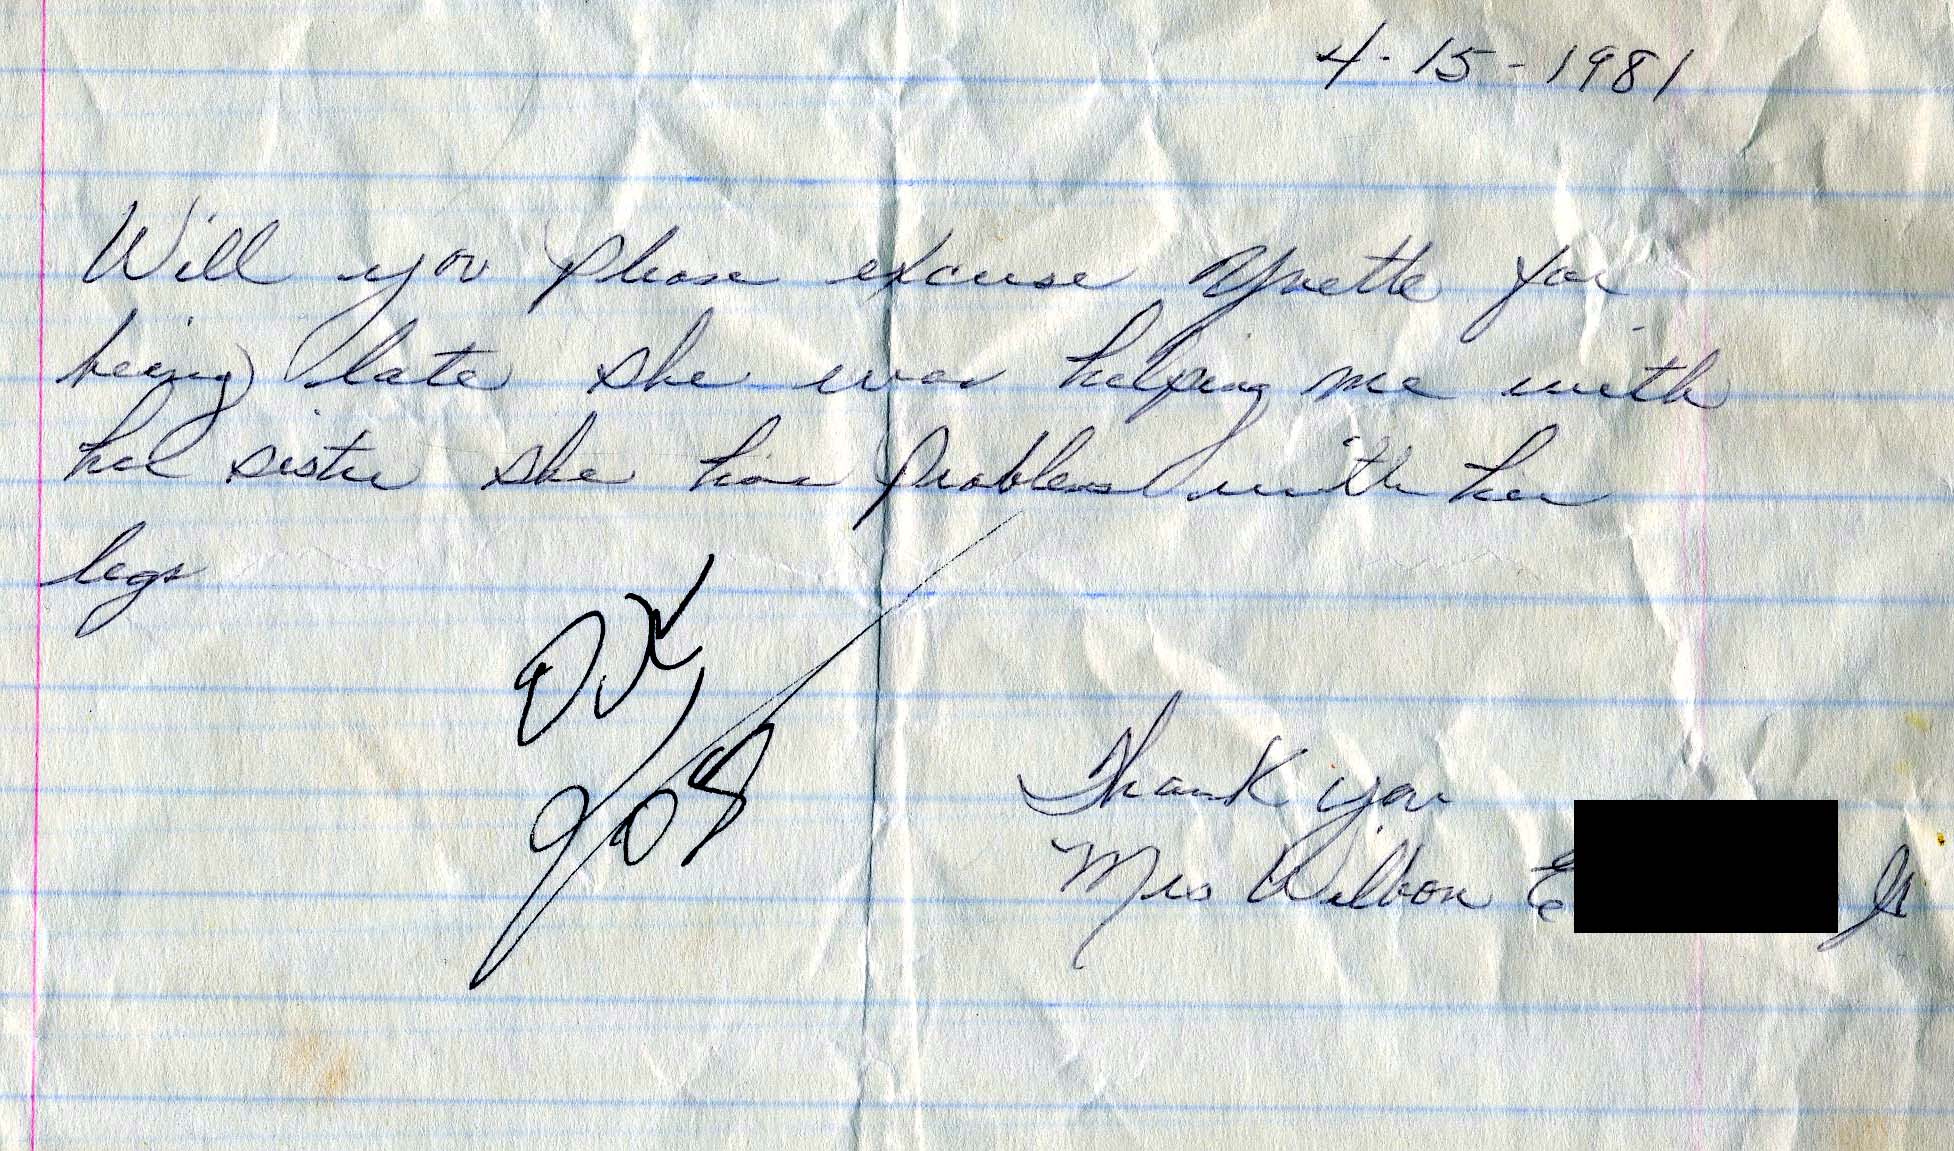 4-15-1981
Will you please excuse Yvette for
being late she was helping me with
her sister she has problems with her
legs
908
Thank you
Mrs Wilbon E
Jr